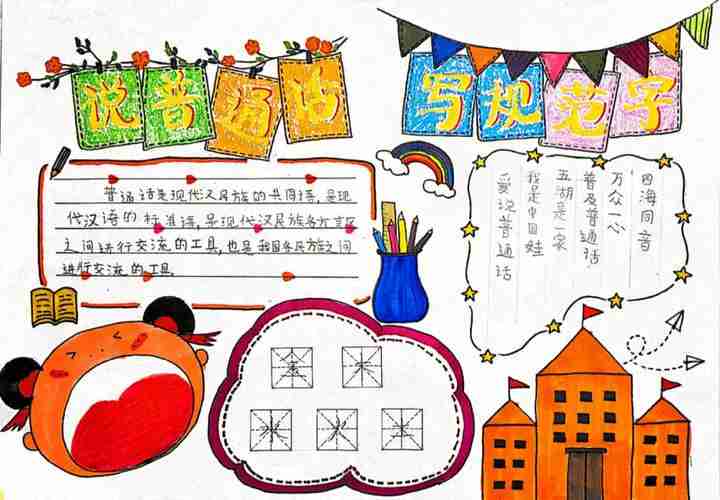 说普通话
写规范字
普通话是现代汉民族的共同语,是现
代汉语的标准语,是现代汉民族各方言区
之间进行交流的工具,也是我国各民族之间
进行交流的工具.
四海同音
万众一心
普及普通话
五湖是一家
我是中国娃
爱说普通话